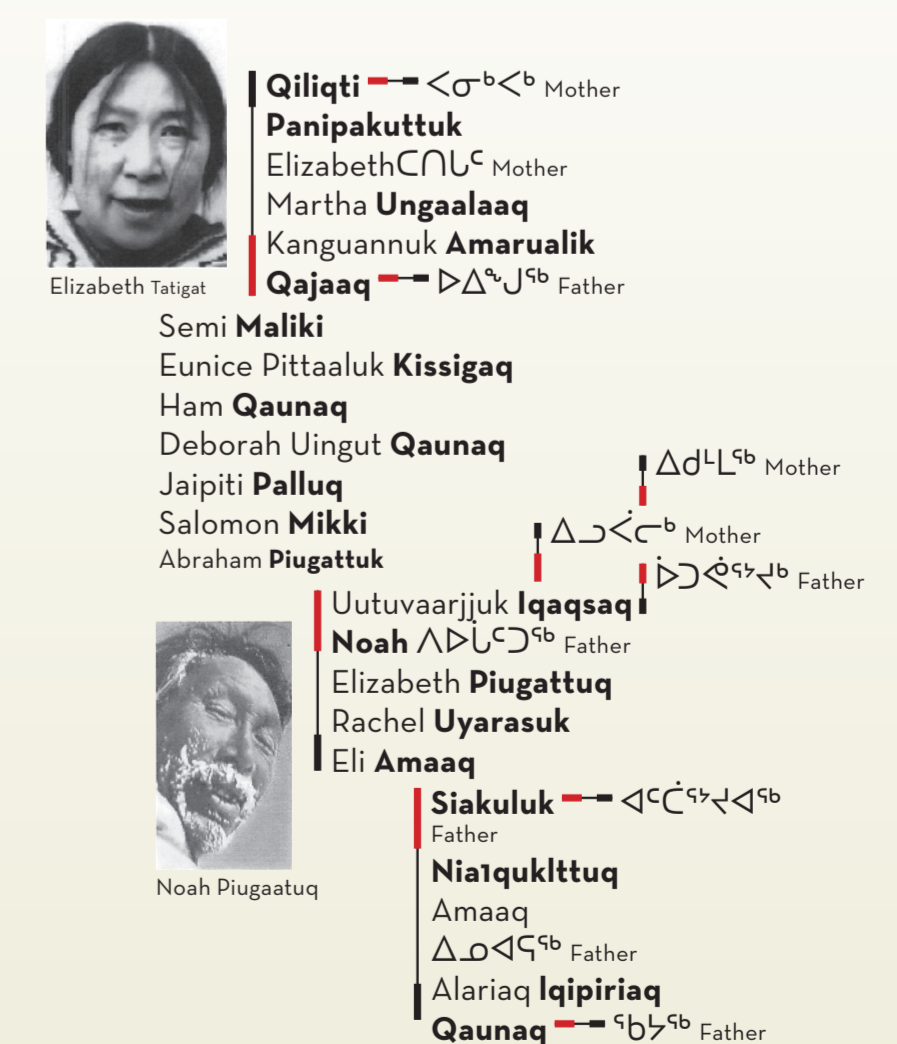 Qiliqti ᐸᓂᒃᐸᒃ Mother
Panipakuttuk
Elizabethᑕᑎᒐᑦ Mother
Martha Ungaalaaq
Kanguannuk Amarualik
Qajaaq ᐅᐃᖕᒍᖅ Father
Elizabeth Tatigat
Semi Maliki
Eunice Pittaaluk Kissigaq
Ham Qaunaq
Deborah Uingut Qaunaq
ᐃᑯᒻᒪᖅ Mother
Jaipiti Palluq
Salomon Mikki
ᐃᓗᐹᓕᒃ Mother
Abraham Piugattuk
ᐆᑐᕚᕐᔪᒃ Father
Uutuvaarjjuk Iqaqsaq
Noah ᐱᐅᒑᑦᑐᖅ Father
Elizabeth Piugattuq
Rachel Uyarasuk
Eli Amaaq
Noah Piugaatuq
Siakuluk ᐊᑦᑖᕐᔪᐊᖅ
Father
Nia1quklttuq
Amaaq
ᐃᓄᐊᕋᖅ Father
Alariaq lqipiriaq
Qaunaq ᖃᔭᖅ Father